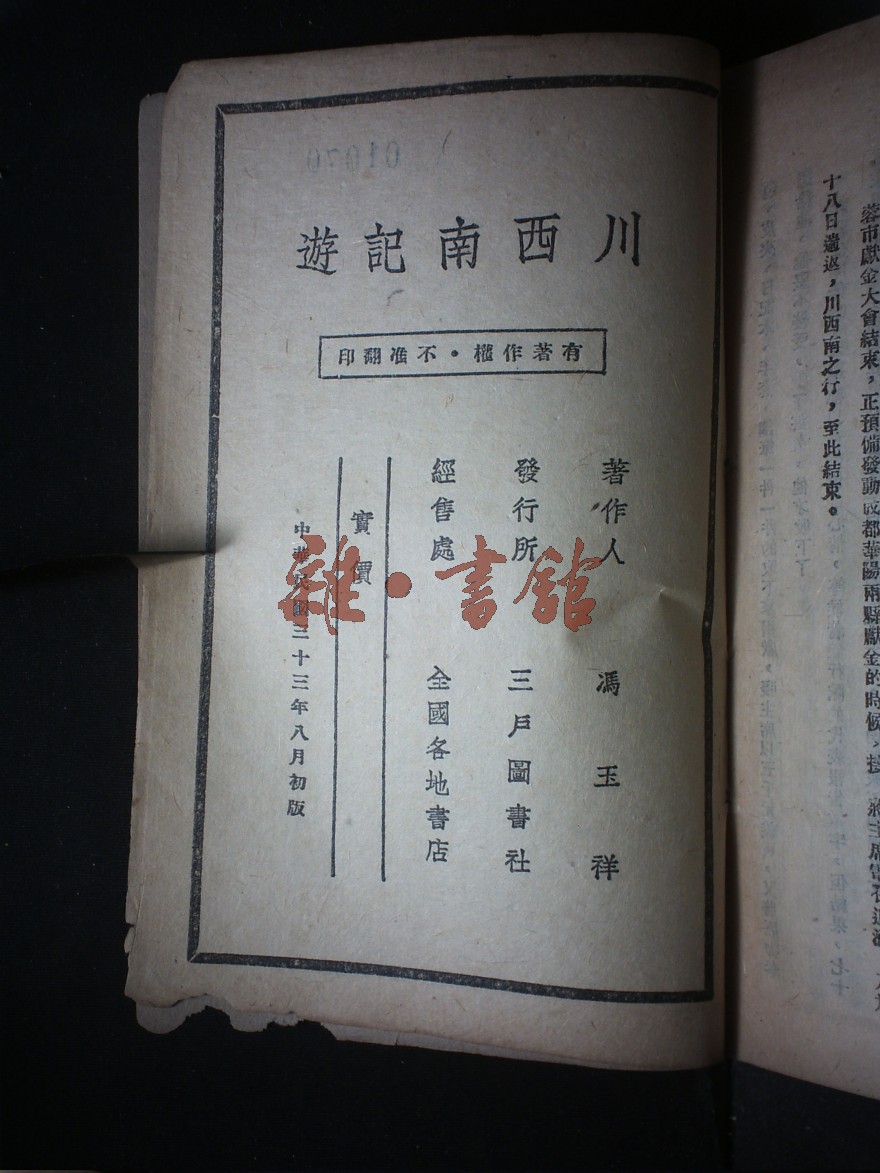 蓉市獻金大會結束,正預備發動成都華陽兩縣獻金的時候,接 蔣主席電召返渝
十八日遄返,川西南之行,至此結束。
01070
川西南記遊
有著作權・不准翻印
著作人 馮玉祥
發行所 三戶圖書社
經售處 全國各地書店
實價
中華民國三十三年八月初版
雜・書館